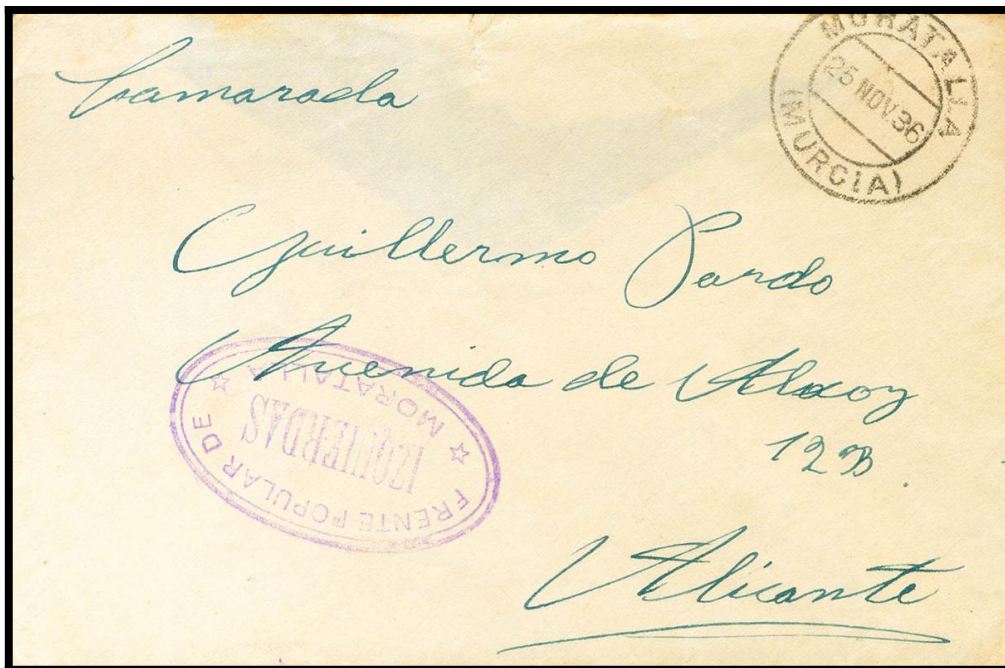 Camarada
MORATALLA
25 NOV.36
(MURCIA)
Guillermo Pardo
Avenida de Alcoy
12 B
Alicante
FRENTE POPULAR DE
IZQUIERDAS
MORATALLA